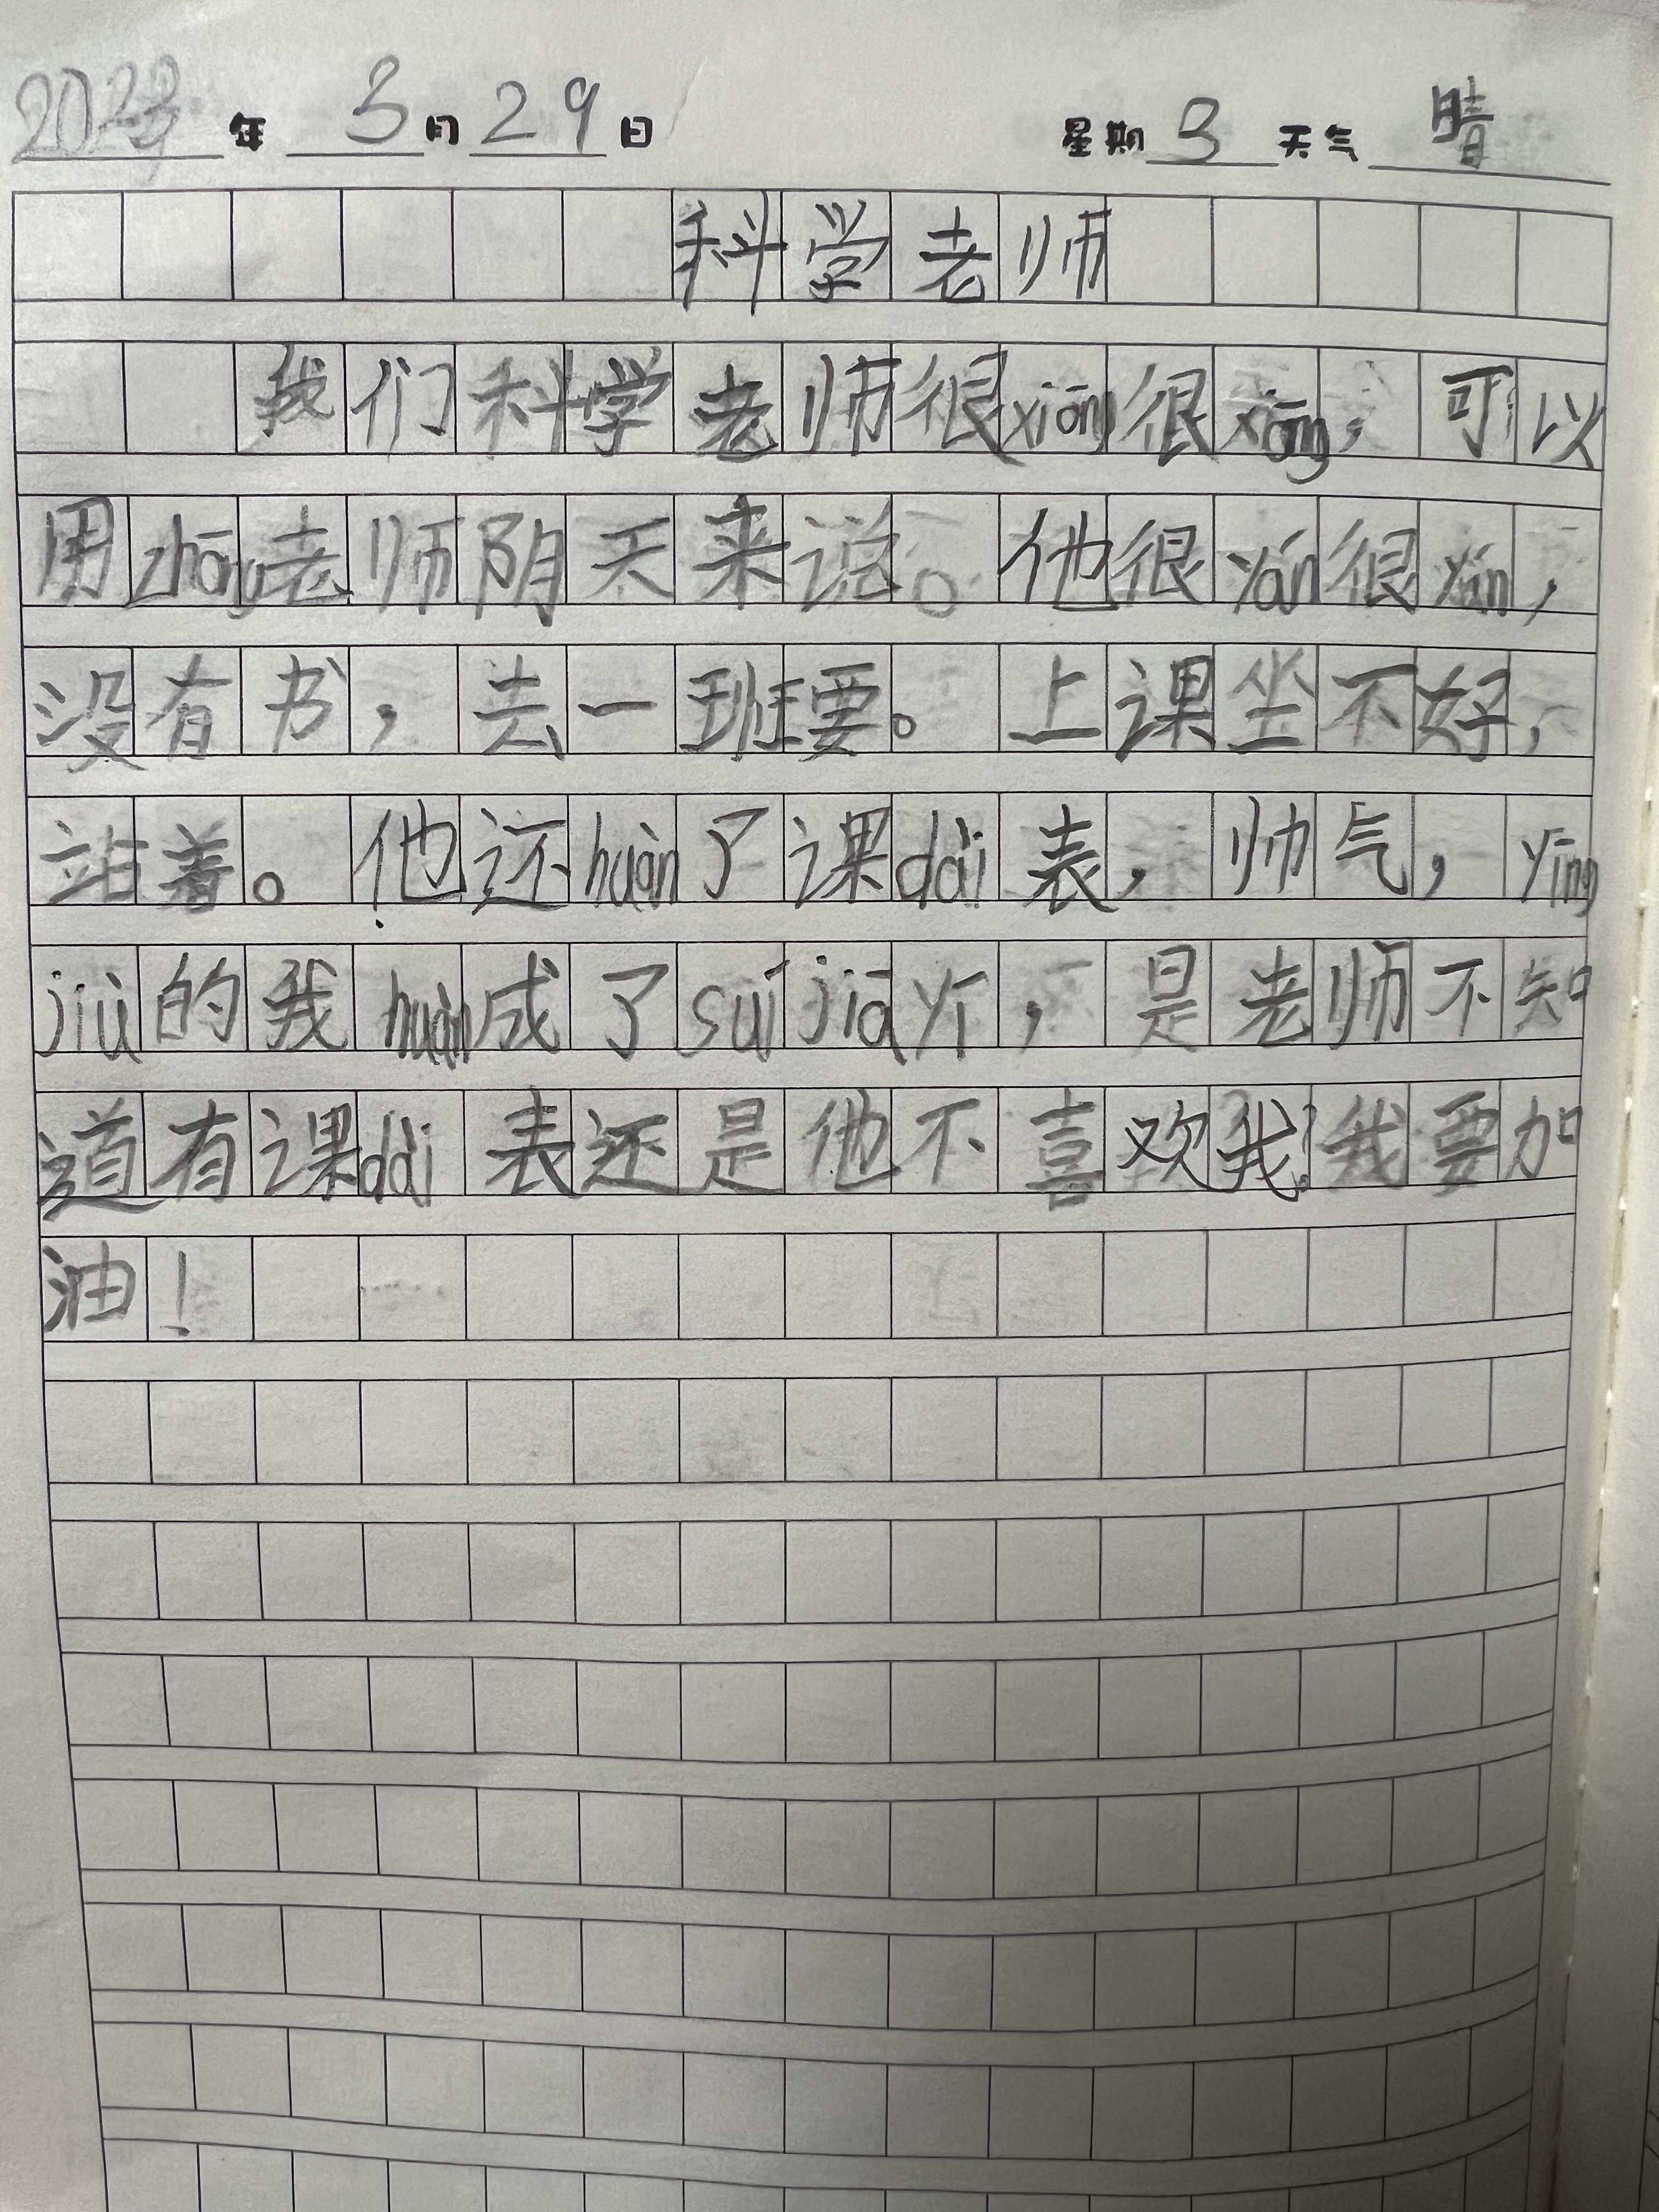 2023年 3月29日 星期3 天气 晴
科学老师
我们科学老师很xiōng很xiōng，可以
用zhōu老师阴天来说。他很yán很yán，
没有书，去一班要。上课坐不好，
站着。他还huàn了课dài表，帅气，yīng
jiù的我huàn成了suí jiā yī，是老师不知
道有课dài表还是他不喜欢我？我要加
油！